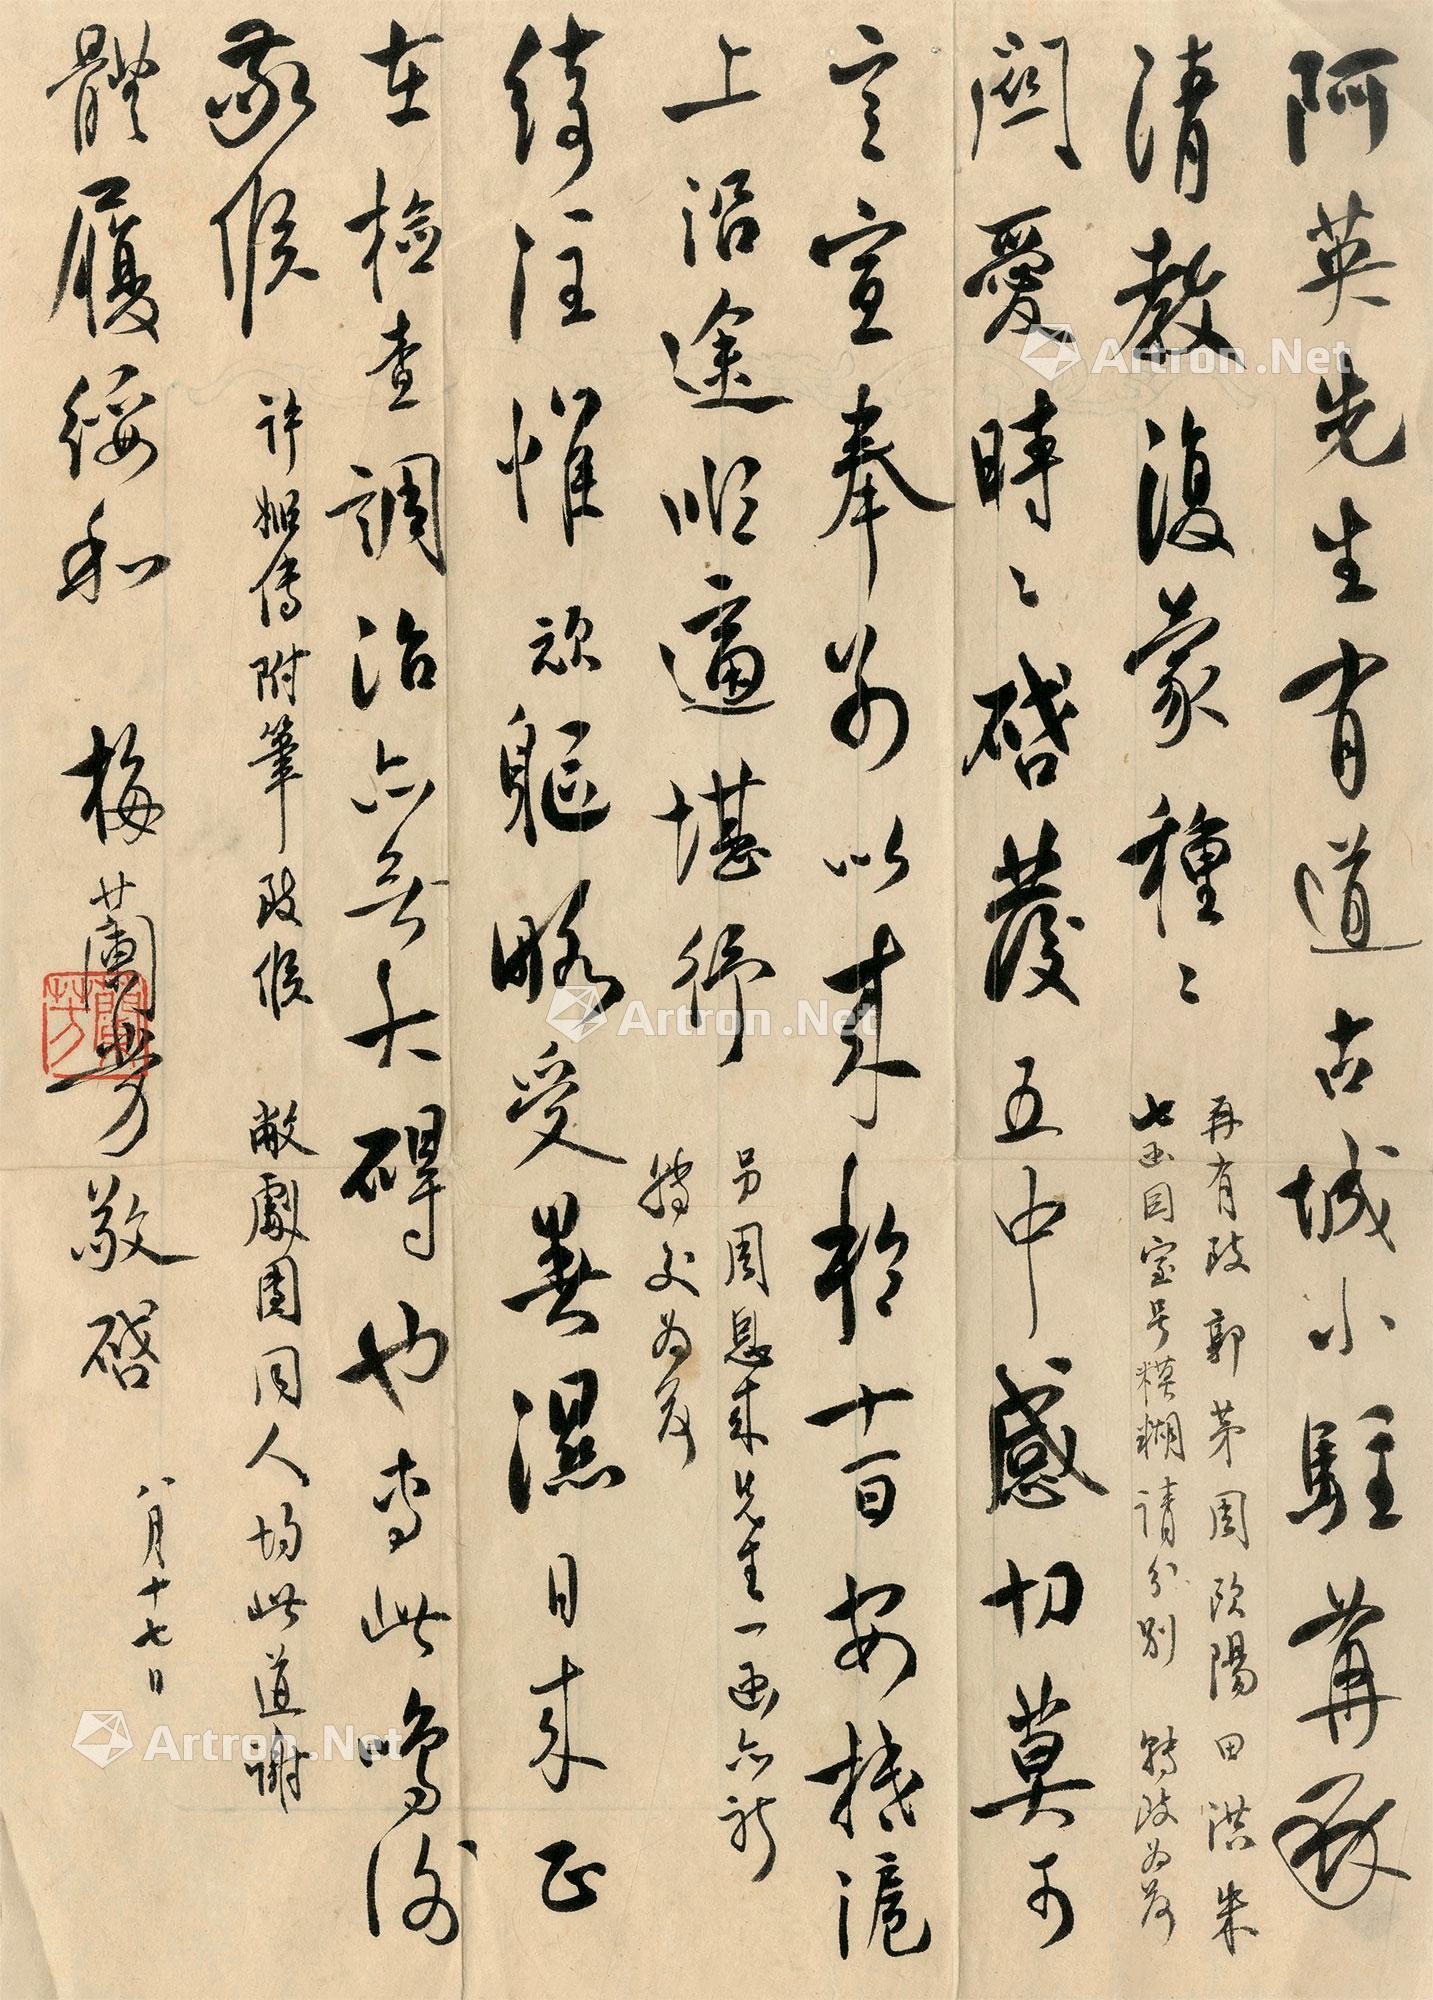 阿英先生有道古城小駐冓承
清教復蒙種々
關愛時々啓發五中感切莫可
言宣奉別以來於十一日安抵滬
上沿途順適堪紓
綺注惟頑軀略受暑濕日來正
在檢查調治亦無大礙也专此鳴謝
敬候
體履綏和
梅蘭芳敬啓
八月十七日
再有致郭茅周歐陽田洪朱
七函因室号模糊請分别 轉致为荷
另周恩來先生一函亦祈
轉交为荷
許姬傳附筆致候
敝劇團同人均此道謝
蘭芳
Artron.Net
Artron.Net
Artron.Net